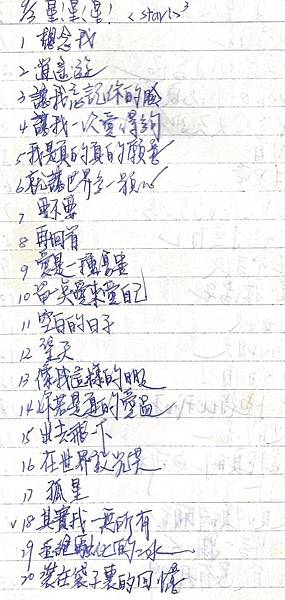 8/3 星!星!星! <stars>³
1 想念我
2 逍遙遊
3 讓我忘記你的臉
4 讓我一次愛得夠
5 我是真的真的願意
6 就讓世界多一顆心
7 要不要
8 再回首
9 愛是一種
10 留一點愛來愛自己
11 空白的日子
12 望天
13 像我這樣的朋友
14 你若是真的愛過
15 出去飛一下
16 在世界
17 孤星
18 其實我一無所有
19 的
20 裝在袋子裏的回憶